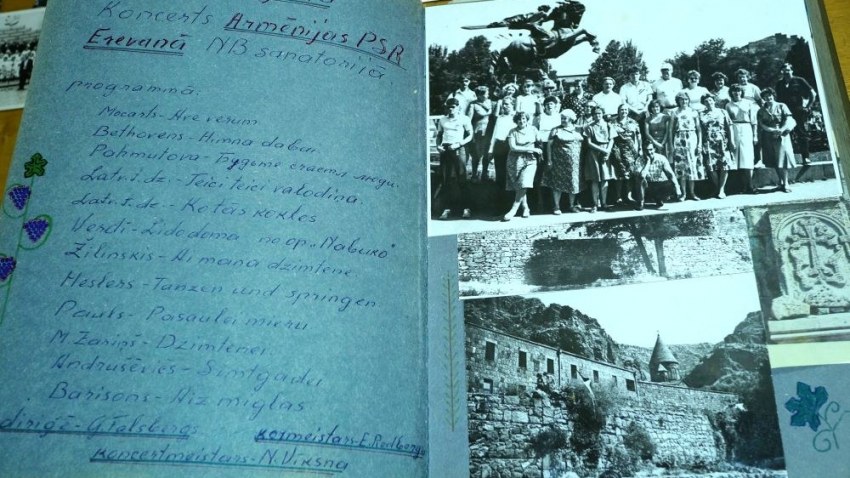 Koncerts Armēnijas PSR
Erevanā NB sanatorijā.
programmā:
Mocarts - Ave verum
Bethovens - Himna dabai
Pahmutova - Будете счастья
Latv.t.dz. - Teici teici valodiņa
Latv.t.dz. - Kotās kokles
Verdi - Židodoma no op. „Nabuko"
Žilinskis - Ai mana dzimtene
Hesters - Tanzen und springen
Pauls - Pasaulei mieru
M. Zariņš - Dzimtenei
Andruševics - Simtgadu
Barisons - Aiz miglas
diriģē - G. Falsbergs kormeistars - E. Redbergs
koncertmeistars - N. Vīksna